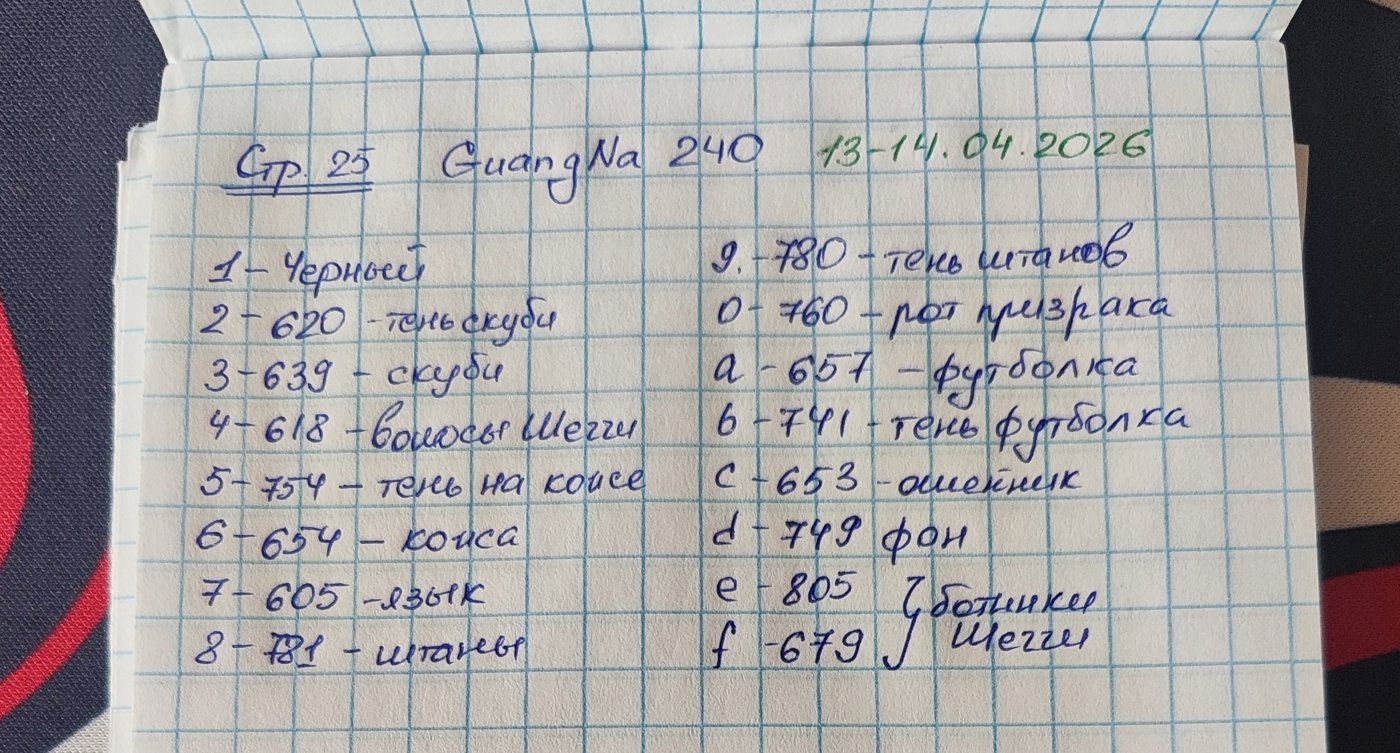 Стр. 25 GuangNa 240 13-14.04.2026
1 - Черный
2 - 620 - тень скуби
3 - 639 - скуби
4 - 618 - волосы Шегги
5 - 754 - тень на коже
6 - 654 - кожа
7 - 605 - язык
8 - 781 - штаны
9. - 780 - тень штанов
0 - 760 - рот призрака
a - 657 - футболка
b - 741 - тень футболка
c - 653 - ошейник
d - 749 фон
e - 805 } ботинки
f - 679 } Шегги